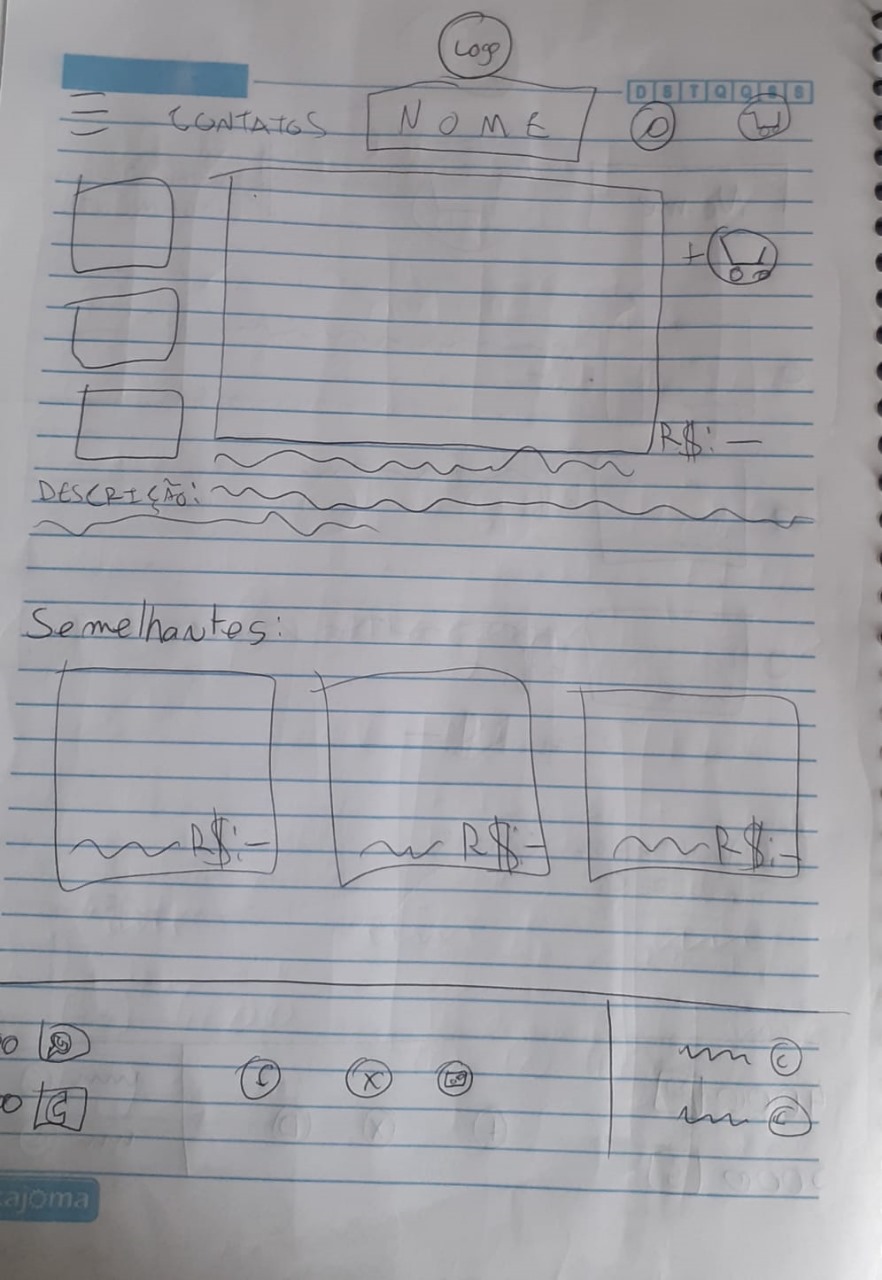 Logo
D S T Q Q S S
CONTATOS NOME
R$: —
DESCRIÇÃO:
Semelhantes:
R$:- R$:- R$:-
X
C
C
tajoma